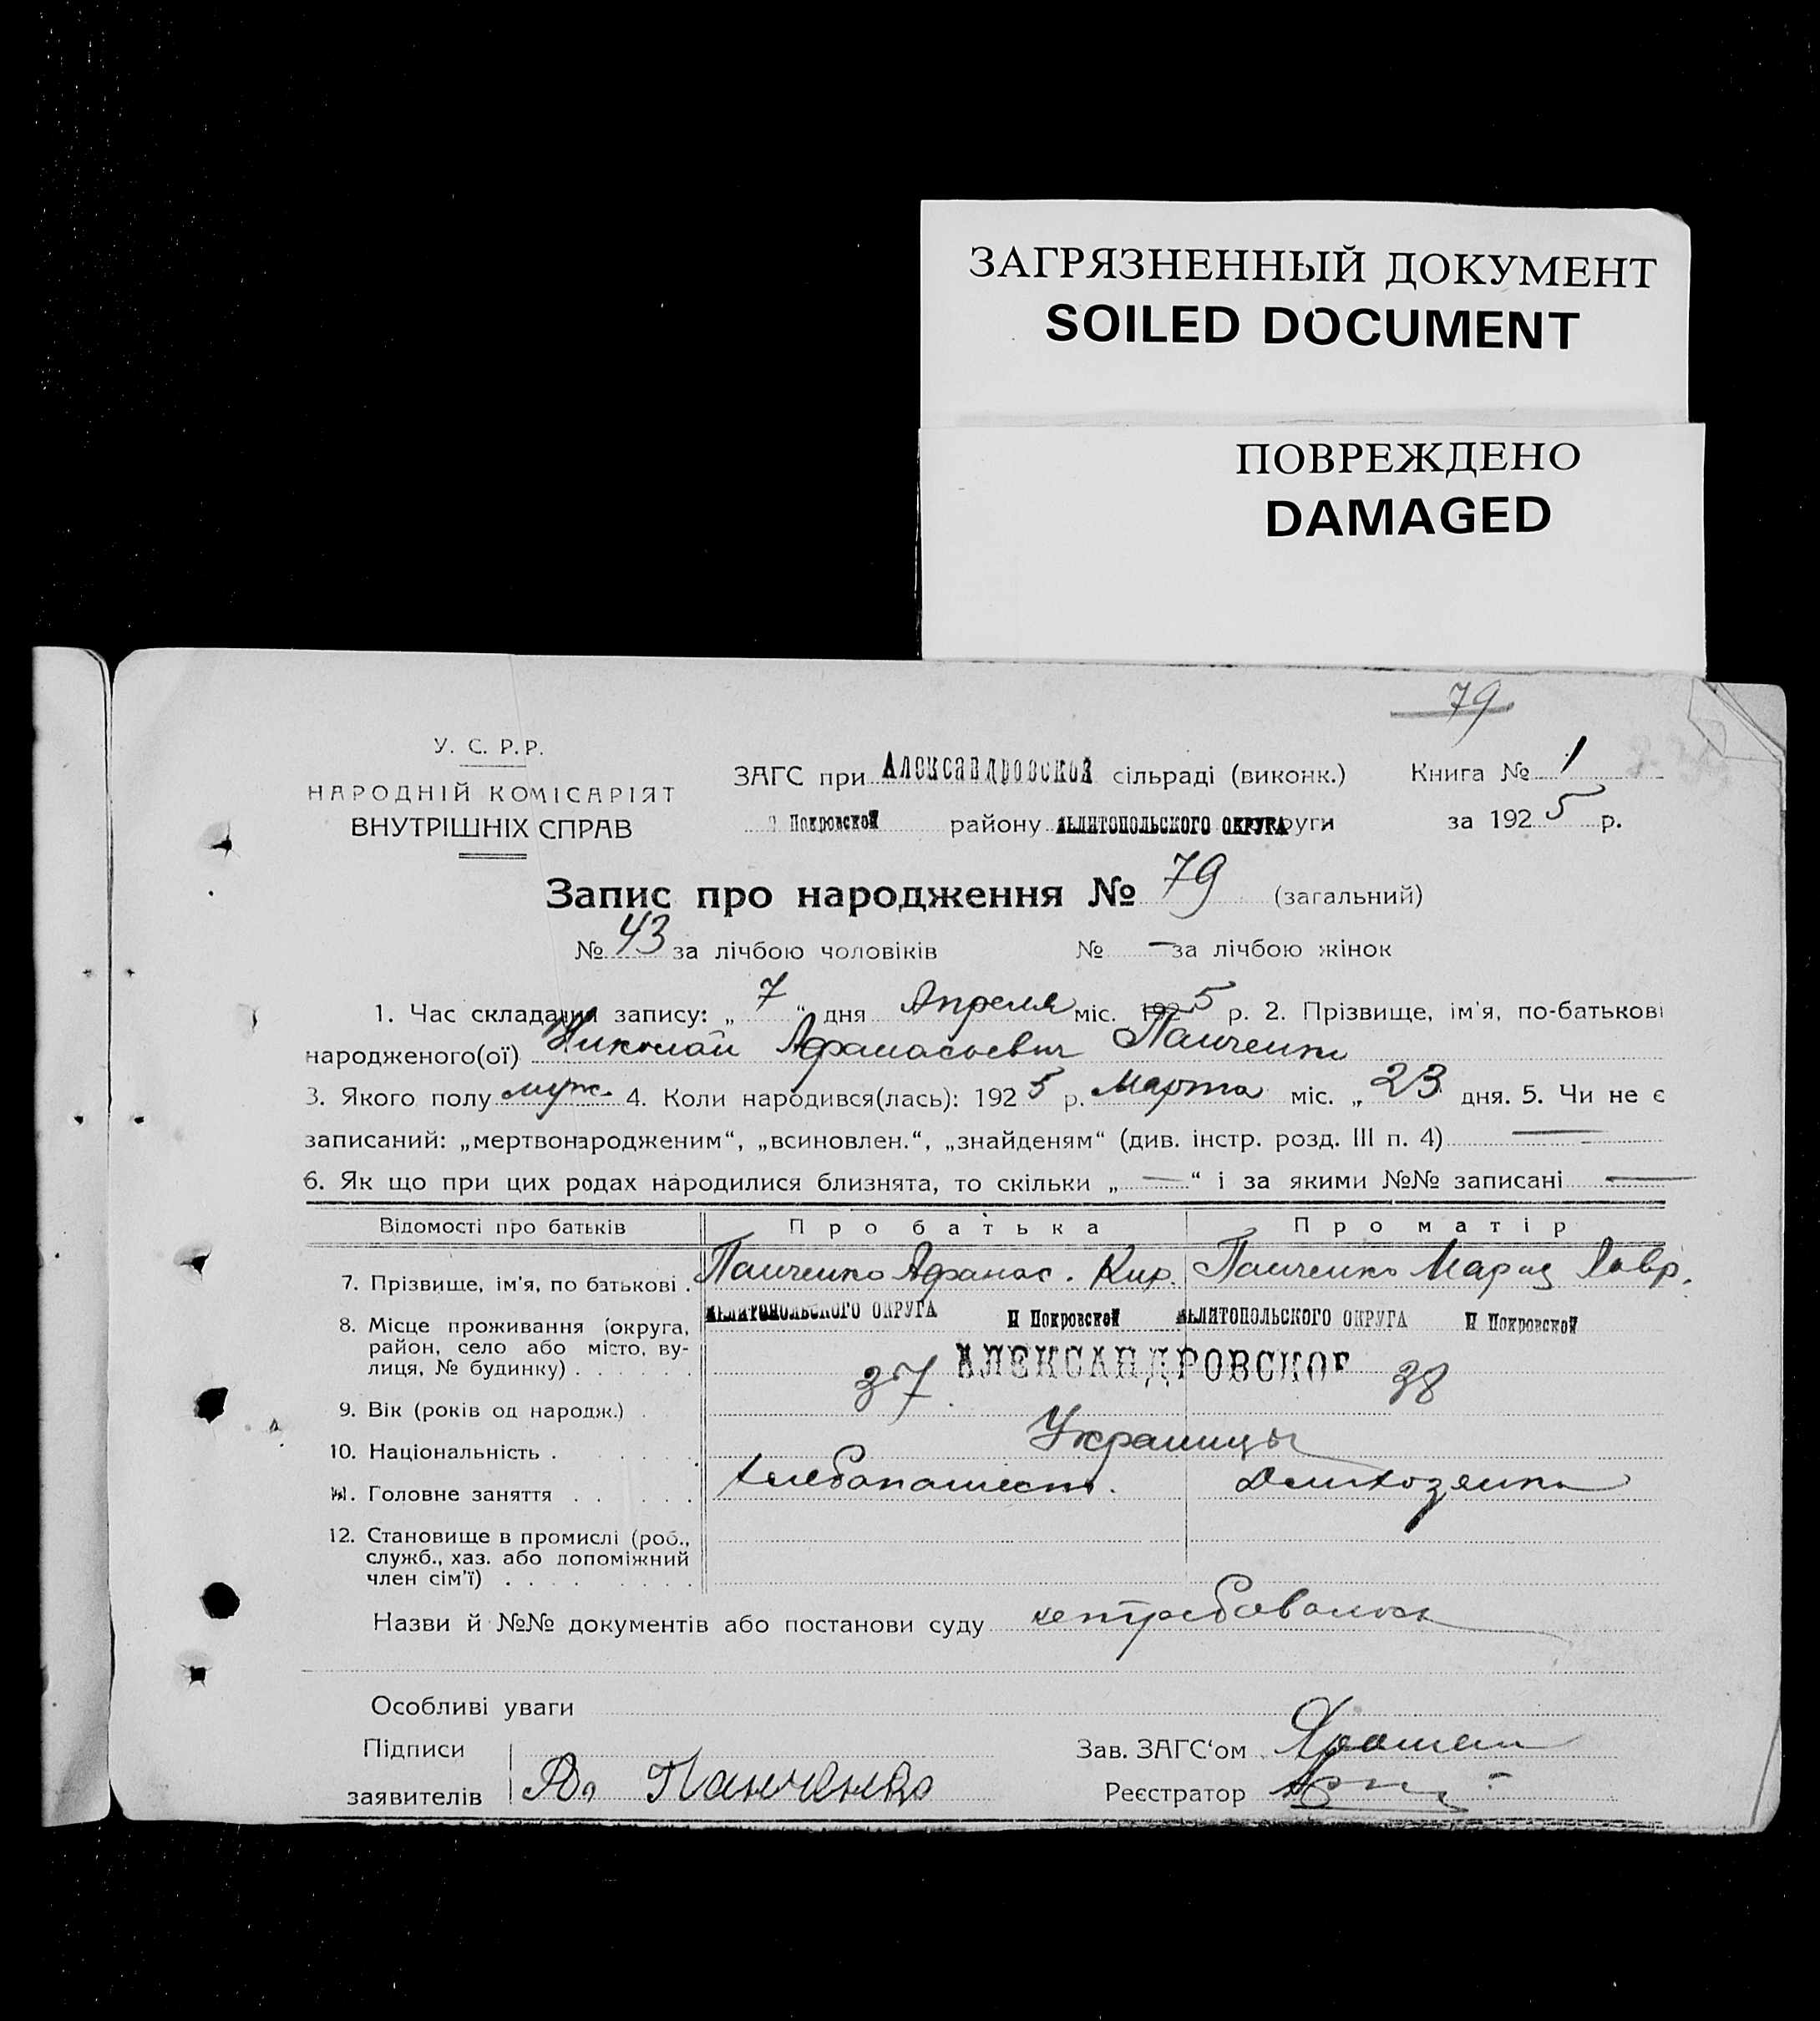 ЗАГРЯЗНЕННЫЙ ДОКУМЕНТ
SOILED DOCUMENT
ПОВРЕЖДЕНО
DAMAGED
79
У. С. Р.Р.
НАРОДНІЙ КОМІСАРІЯТ
ВНУТРІШНІХ СПРАВ
ЗАГС при Александровской сільраді (виконк.) Книга № 1
П Покровской району МЕЛИТОПОЛЬСКОГО ОКРУГА руги за 1925 р.
Запис про народження № 79 (загальний)
№ 43 за лічбою чоловіків № — за лічбою жінок
1. Час складання запису: „ 7 “ дня Апреля міс. 1925 р. 2. Прізвище, ім'я, по-батькові
народженого(ої) Николай Афанасьевич Панченко
3. Якого полу муж. 4. Коли народився(лась): 1925 р. Марта міс. „ 23 дня. 5. Чи не є
записаний: „мертвонародженим“, „всиновлен.“, „знайденям“ (див. інстр. розд. III п. 4) —
6. Як що при цих родах народилися близнята, то скільки „ — “ і за якими №№ записані —
Відомості про батьків Про батька Про матір
7. Прізвище, ім'я, по батькові . Панченко Афанас. Кир. Панченко Мария Лавр.
8. Місце проживання (округа, МЕЛИТОПОЛЬСКОГО ОКРУГА П Покровской МЕЛИТОПОЛЬСКОГО ОКРУГА П Покровской
район, село або місто, ву-
лиця, № будинку) . . . . . . АЛЕКСАНДРОВСКОЕ
9. Вік (років од народж.) . 37 38
10. Національність . . . . . . Украинцы
11. Головне заняття . . . . . Хлебопашест. Домхозяика
12. Становище в промислі (роб.,
служб., хаз. або допоміжний
член сім'ї) . . . . . . . .
Назви й №№ документів або постанови суду нетребовалось
Особливі уваги
Підписи Зав. ЗАГС‘ом
заявителів Панченко Реєстратор